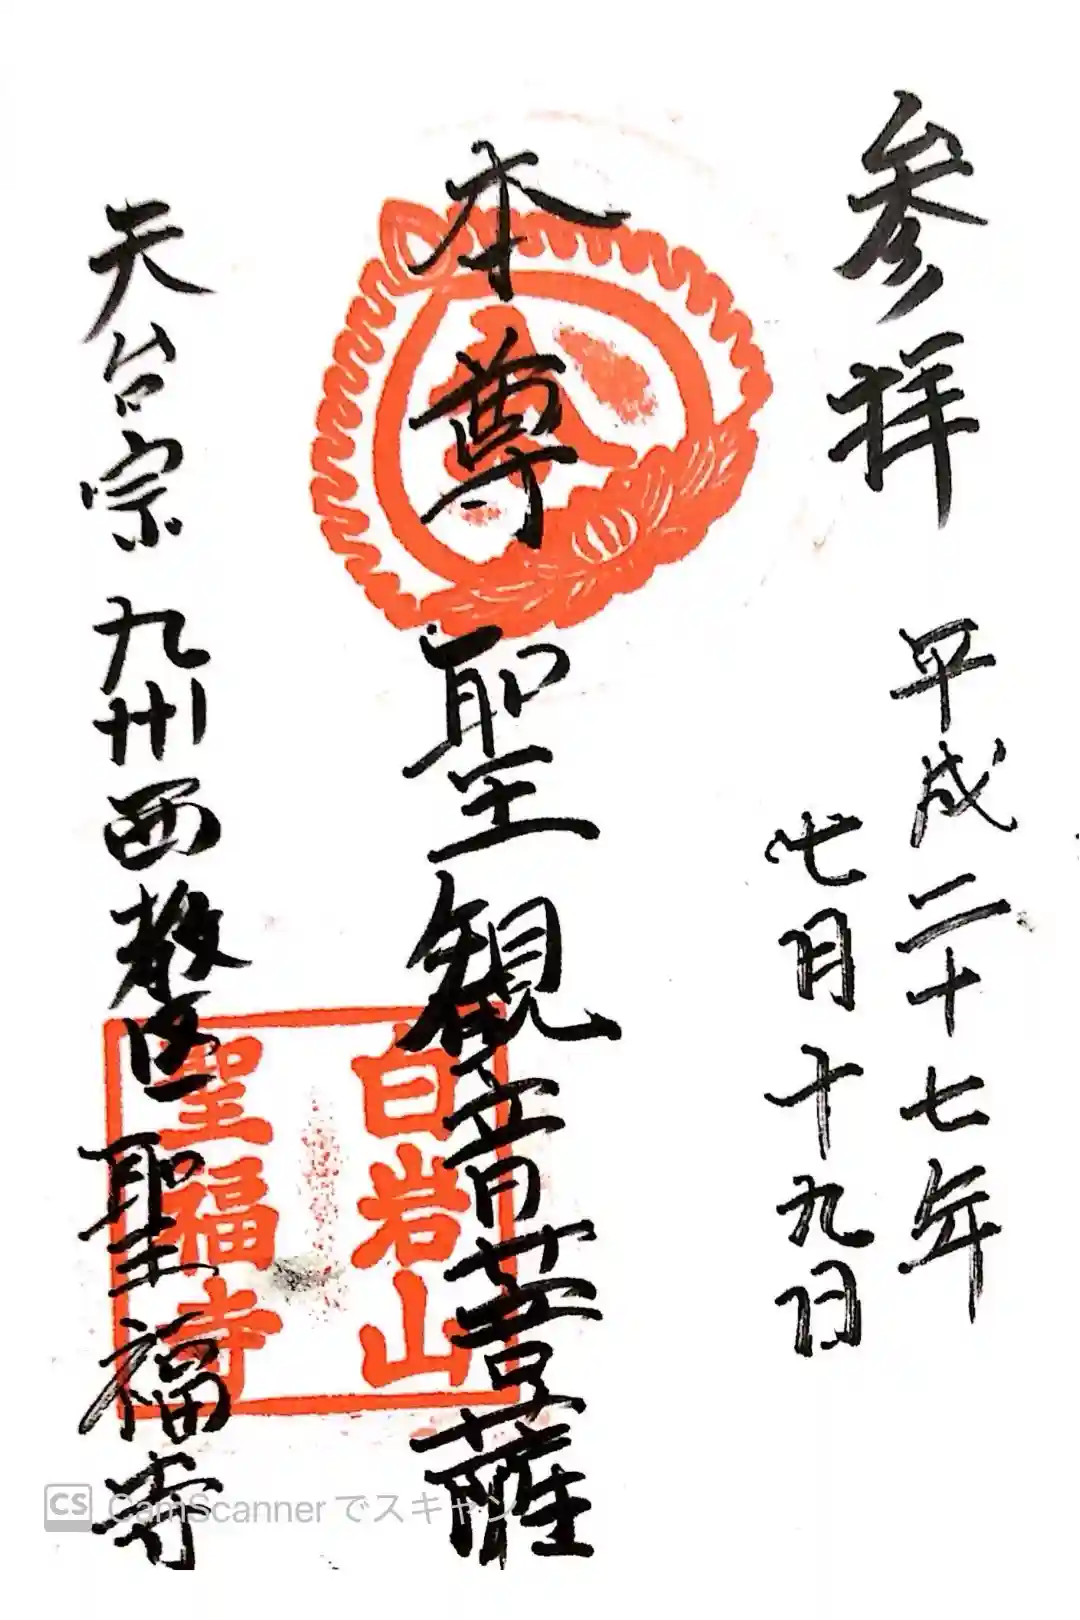 参拝
平成二十七年
七月十九日
本尊 聖観音菩薩
白岩山
聖福寺
天台宗 九州西教区 聖福寺
CS CamScannerでスキャン